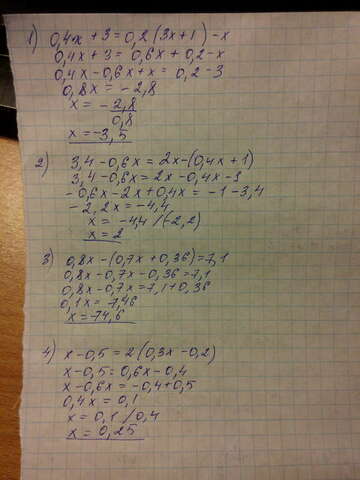 1) 0,4x + 3 = 0,2 (3x + 1) - x
0,4x + 3 = 0,6x + 0,2 - x
0,4x - 0,6x + x = 0,2 - 3
0,8x = - 2,8
x = - 2,8
0,8
x = - 3,5
2) 3,4 - 0,6x = 2x - (0,4x + 1)
3,4 - 0,6x = 2x - 0,4x - 1
- 0,6x - 2x + 0,4x = - 1 - 3,4
- 2,2x = - 4,4
x = - 4,4 / (-2,2)
x = 2
3) 0,8x - (0,7x + 0,36) = 7,1
0,8x - 0,7x - 0,36 = 7,1
0,8x - 0,7x = 7,1 + 0,36
0,1x = 7,46
x = 74,6
4) x - 0,5 = 2 (0,3x - 0,2)
x - 0,5 = 0,6x - 0,4
x - 0,6x = - 0,4 + 0,5
0,4x = 0,1
x = 0,1 / 0,4
x = 0,25